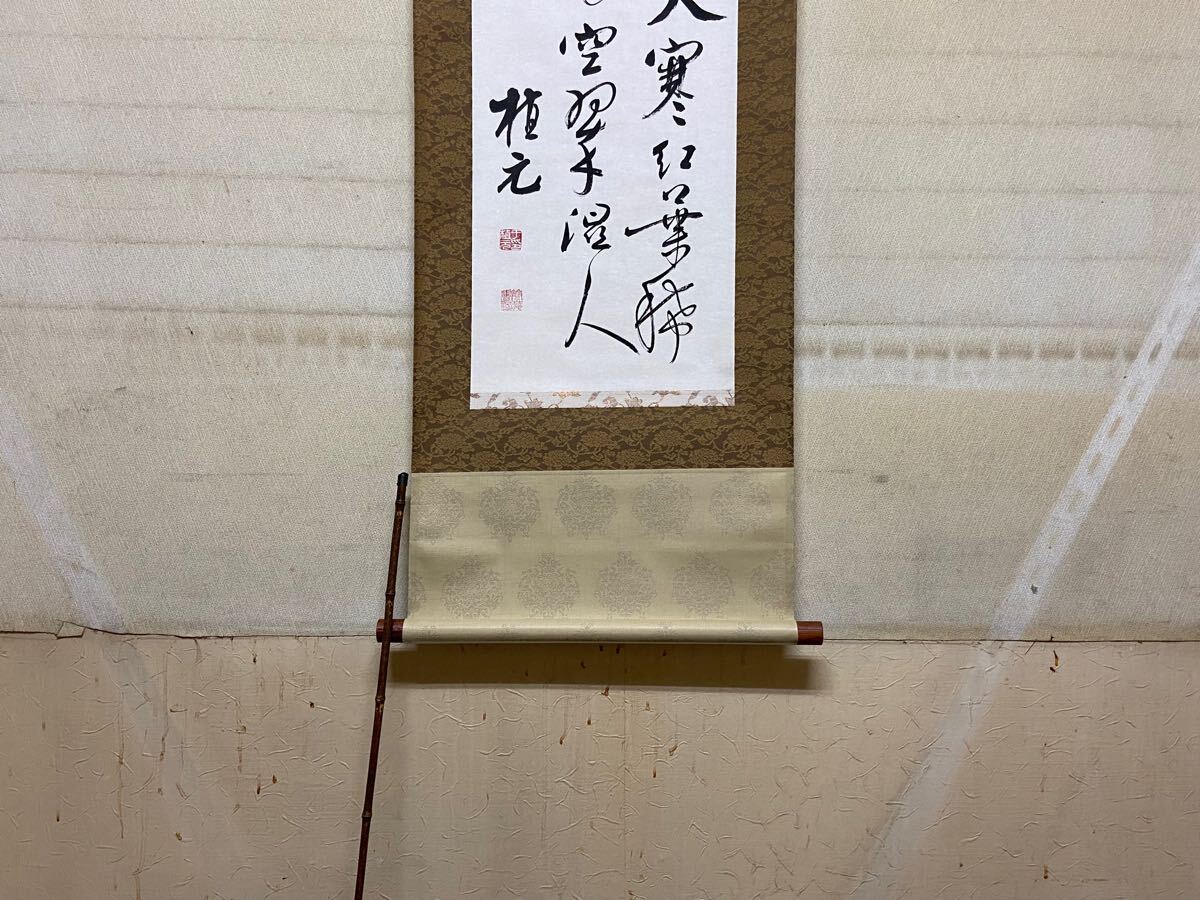 天寒紅葉稀
空翠湿人
植元